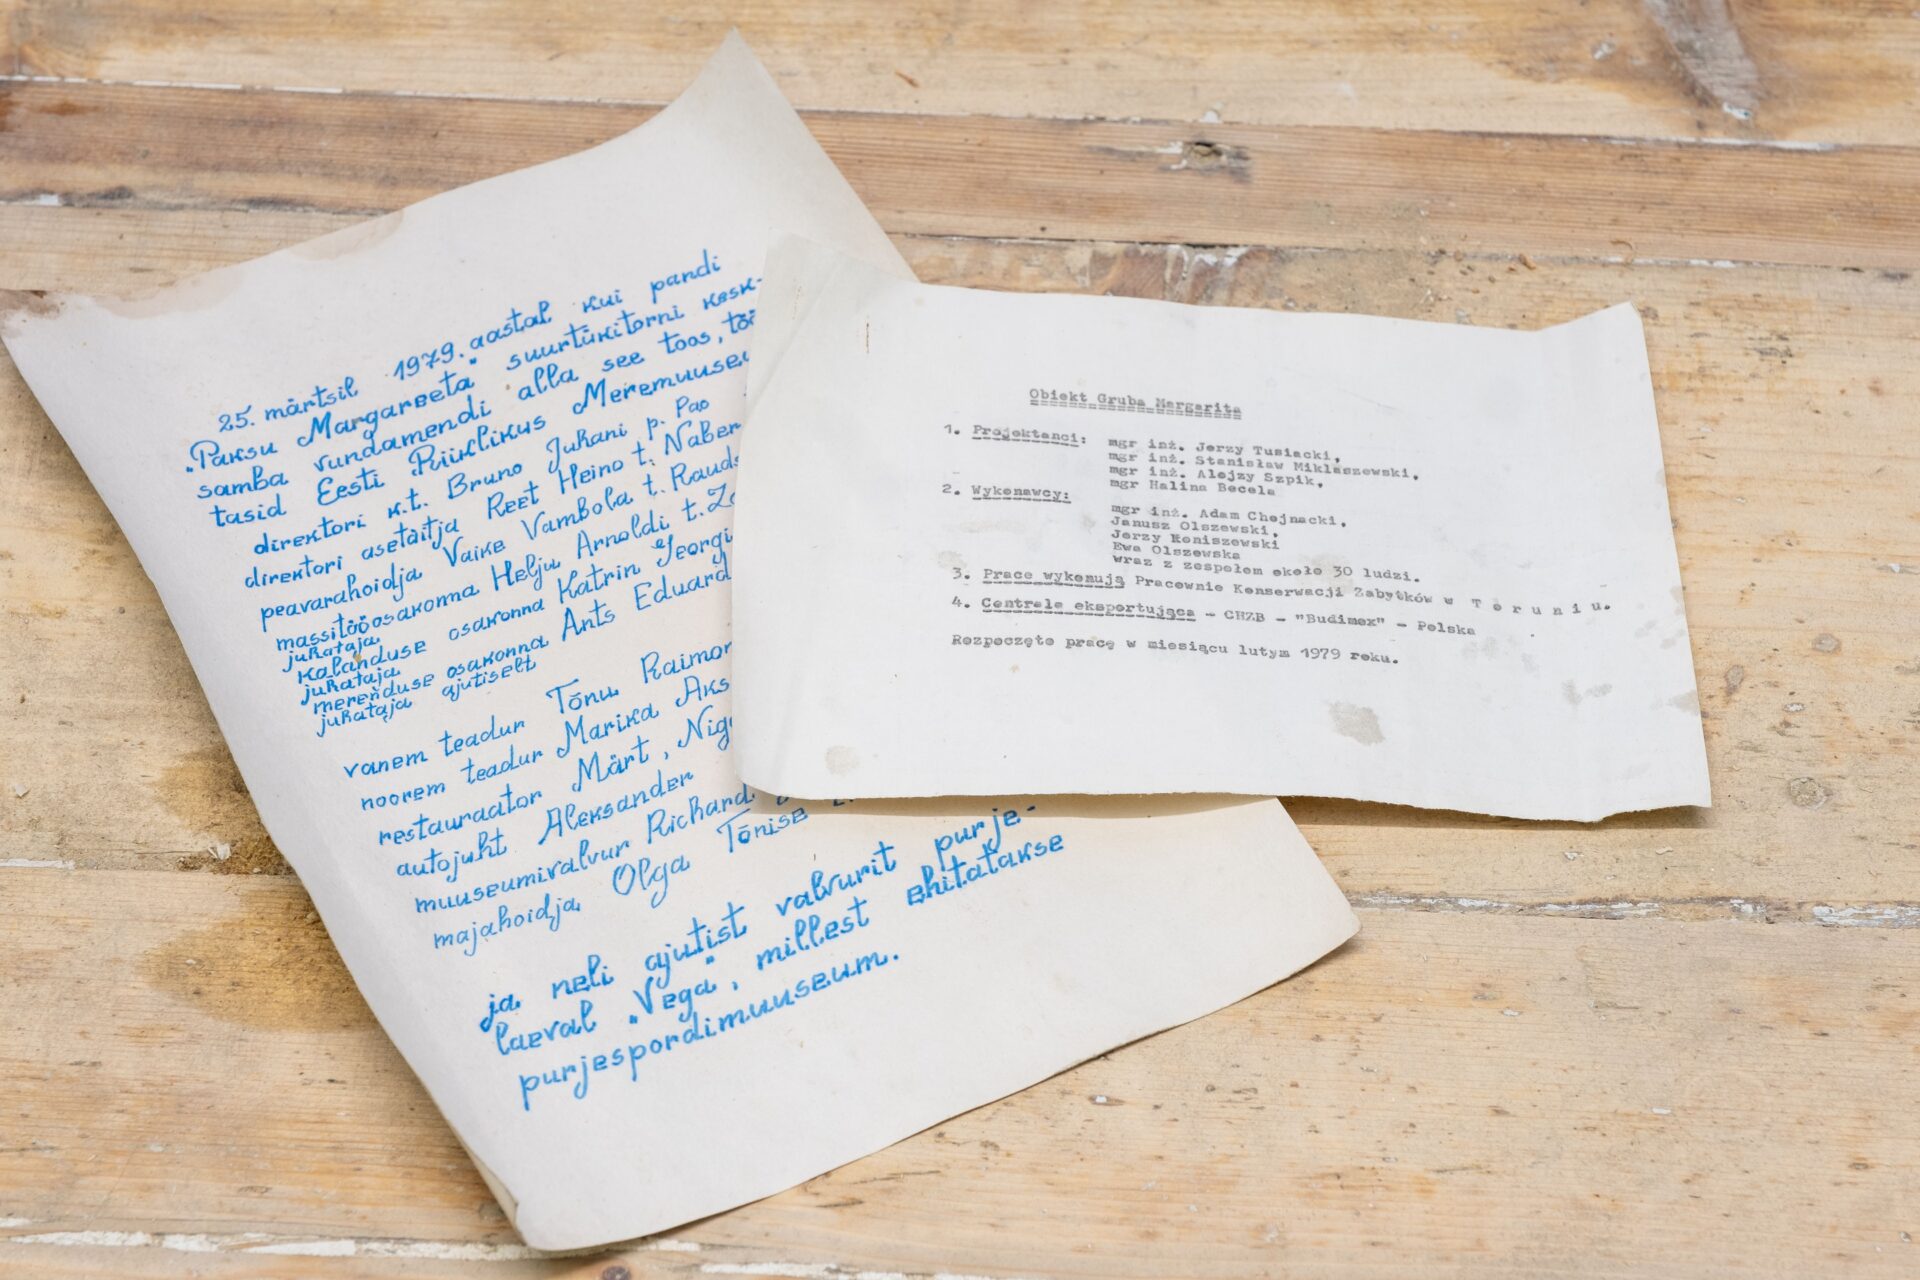 25. märtsil 1979. aastal kui pandi
„Paksu Margareeta" suurtükitorni kesk-
samba vundamendi alla see toos, töö
tasid Eesti Riiklikus Meremuuseu
direktori k.t. Bruno Juhani p. Pao
direktori asetäitja Reet Heino t. Naber
peavarahoidja Vaike Vambola t. Rauds
massitööosakonna Helju Arnoldi t.
juhataja
kalanduse osakonna Katrin Georgi
juhataja
merenduse osakonna Ants Eduard
juhataja ajutiselt
vanem teadur Tõnu Raimon
noorem teadur Marika Aks
restauraator Märt, Nig
autojuht Aleksander
muuseumivalvur Richard
majahoidja Olga Tõnise
ja neli ajutist valvurit purje-
laeval „Vega", millest ehitatakse
purjespordimuuseum.
Obiekt Gruba Margarita
1. Projektanci: mgr inż. Jerzy Tusiacki,
mgr inż. Stanisław Mikłaszewski,
mgr inż. Alojzy Szpik,
mgr Halina Becela
2. Wykonawcy:
mgr inż. Adam Chojnacki,
Janusz Olszewski,
Jerzy Roniszewski
Ewa Olszewska
wraz z zespołem około 30 ludzi.
3. Prace wykonują Pracownie Konserwacji Zabytków w T o r u n i u.
4. Centrala eksportująca - CHZB - "Budimex" - Polska
Rozpoczęto pracę w miesiącu lutym 1979 roku.